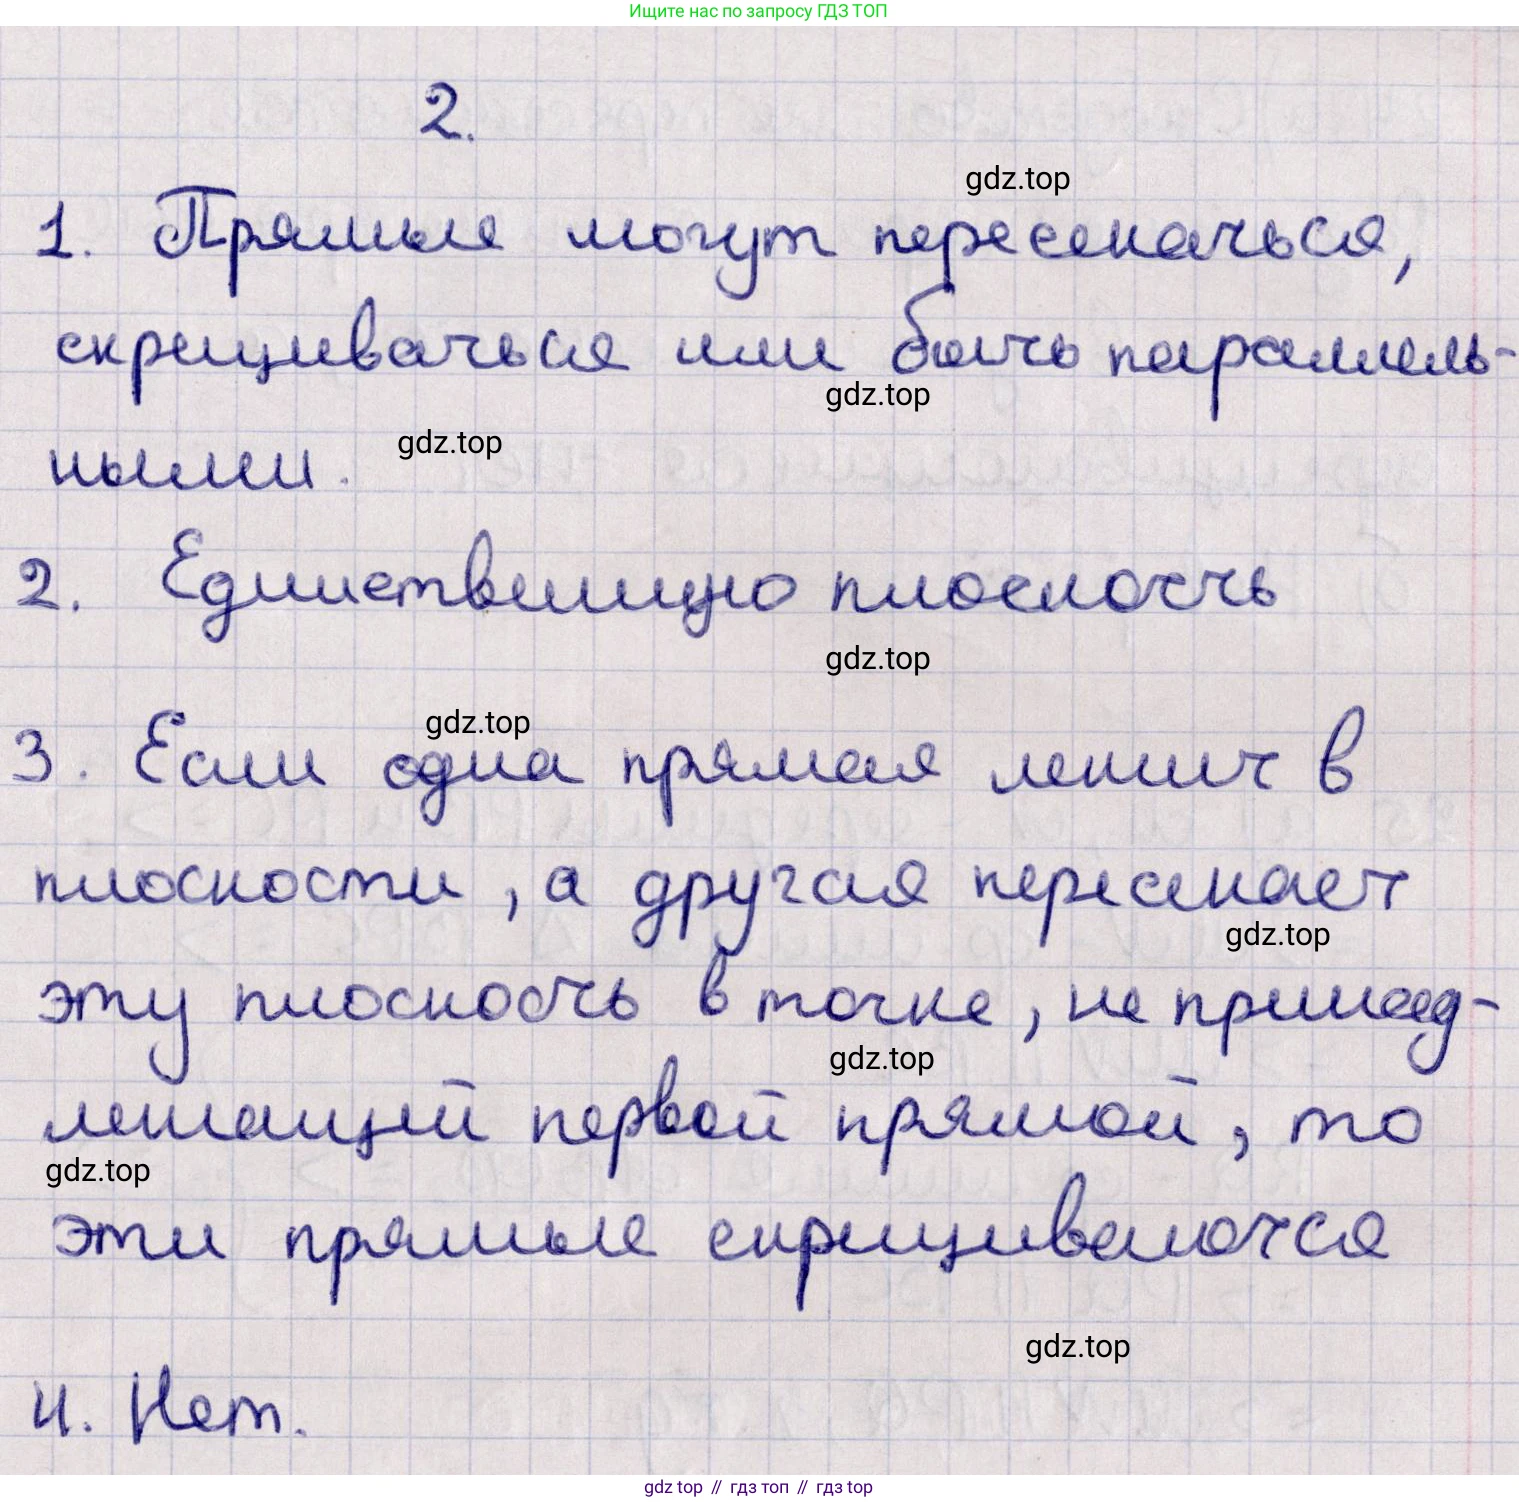 Ищите нас по запросу ГДЗ ТОП
2.
gdz.top
1. Прямые могут пересекаться,
скрещиваться или быть параллель-
gdz.top
gdz.top
ными.
2. Единственную плоскость
gdz.top
gdz.top
3. Если одна прямая лежит в
плоскости, а другая пересекает
gdz.top
эту плоскость в точке, не принад-
gdz.top
лежащей первой прямой, то
gdz.top
эти прямые скрещиваются
gdz.top
4. Нет.
gdz top // гдз топ // гдз top